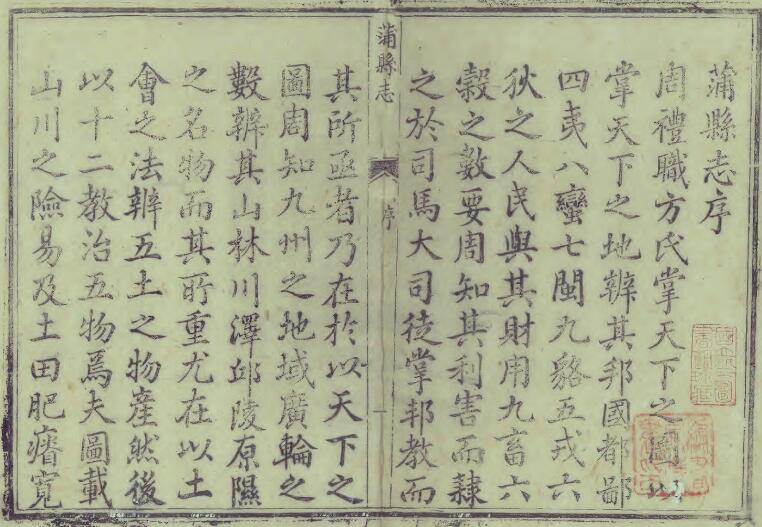 蒲縣志序
周禮職方氏掌天下之圖以
掌天下之地辨其邦國都鄙
四夷八蠻七閩九貉五戎六
狄之人民與其財用九畜六
榖之數要周知其利害而隸
之於司馬大司徒掌邦教而
蒲縣志
序
一
其所亟者乃在於以天下之
圖周知九州之地域廣輪之
數辨其山林川澤邱陵原隰
之名物而其所重尤在以土
會之法辨五土之物產然後
以十二教治五物焉夫圖載
山川之險易及土田肥瘠寛